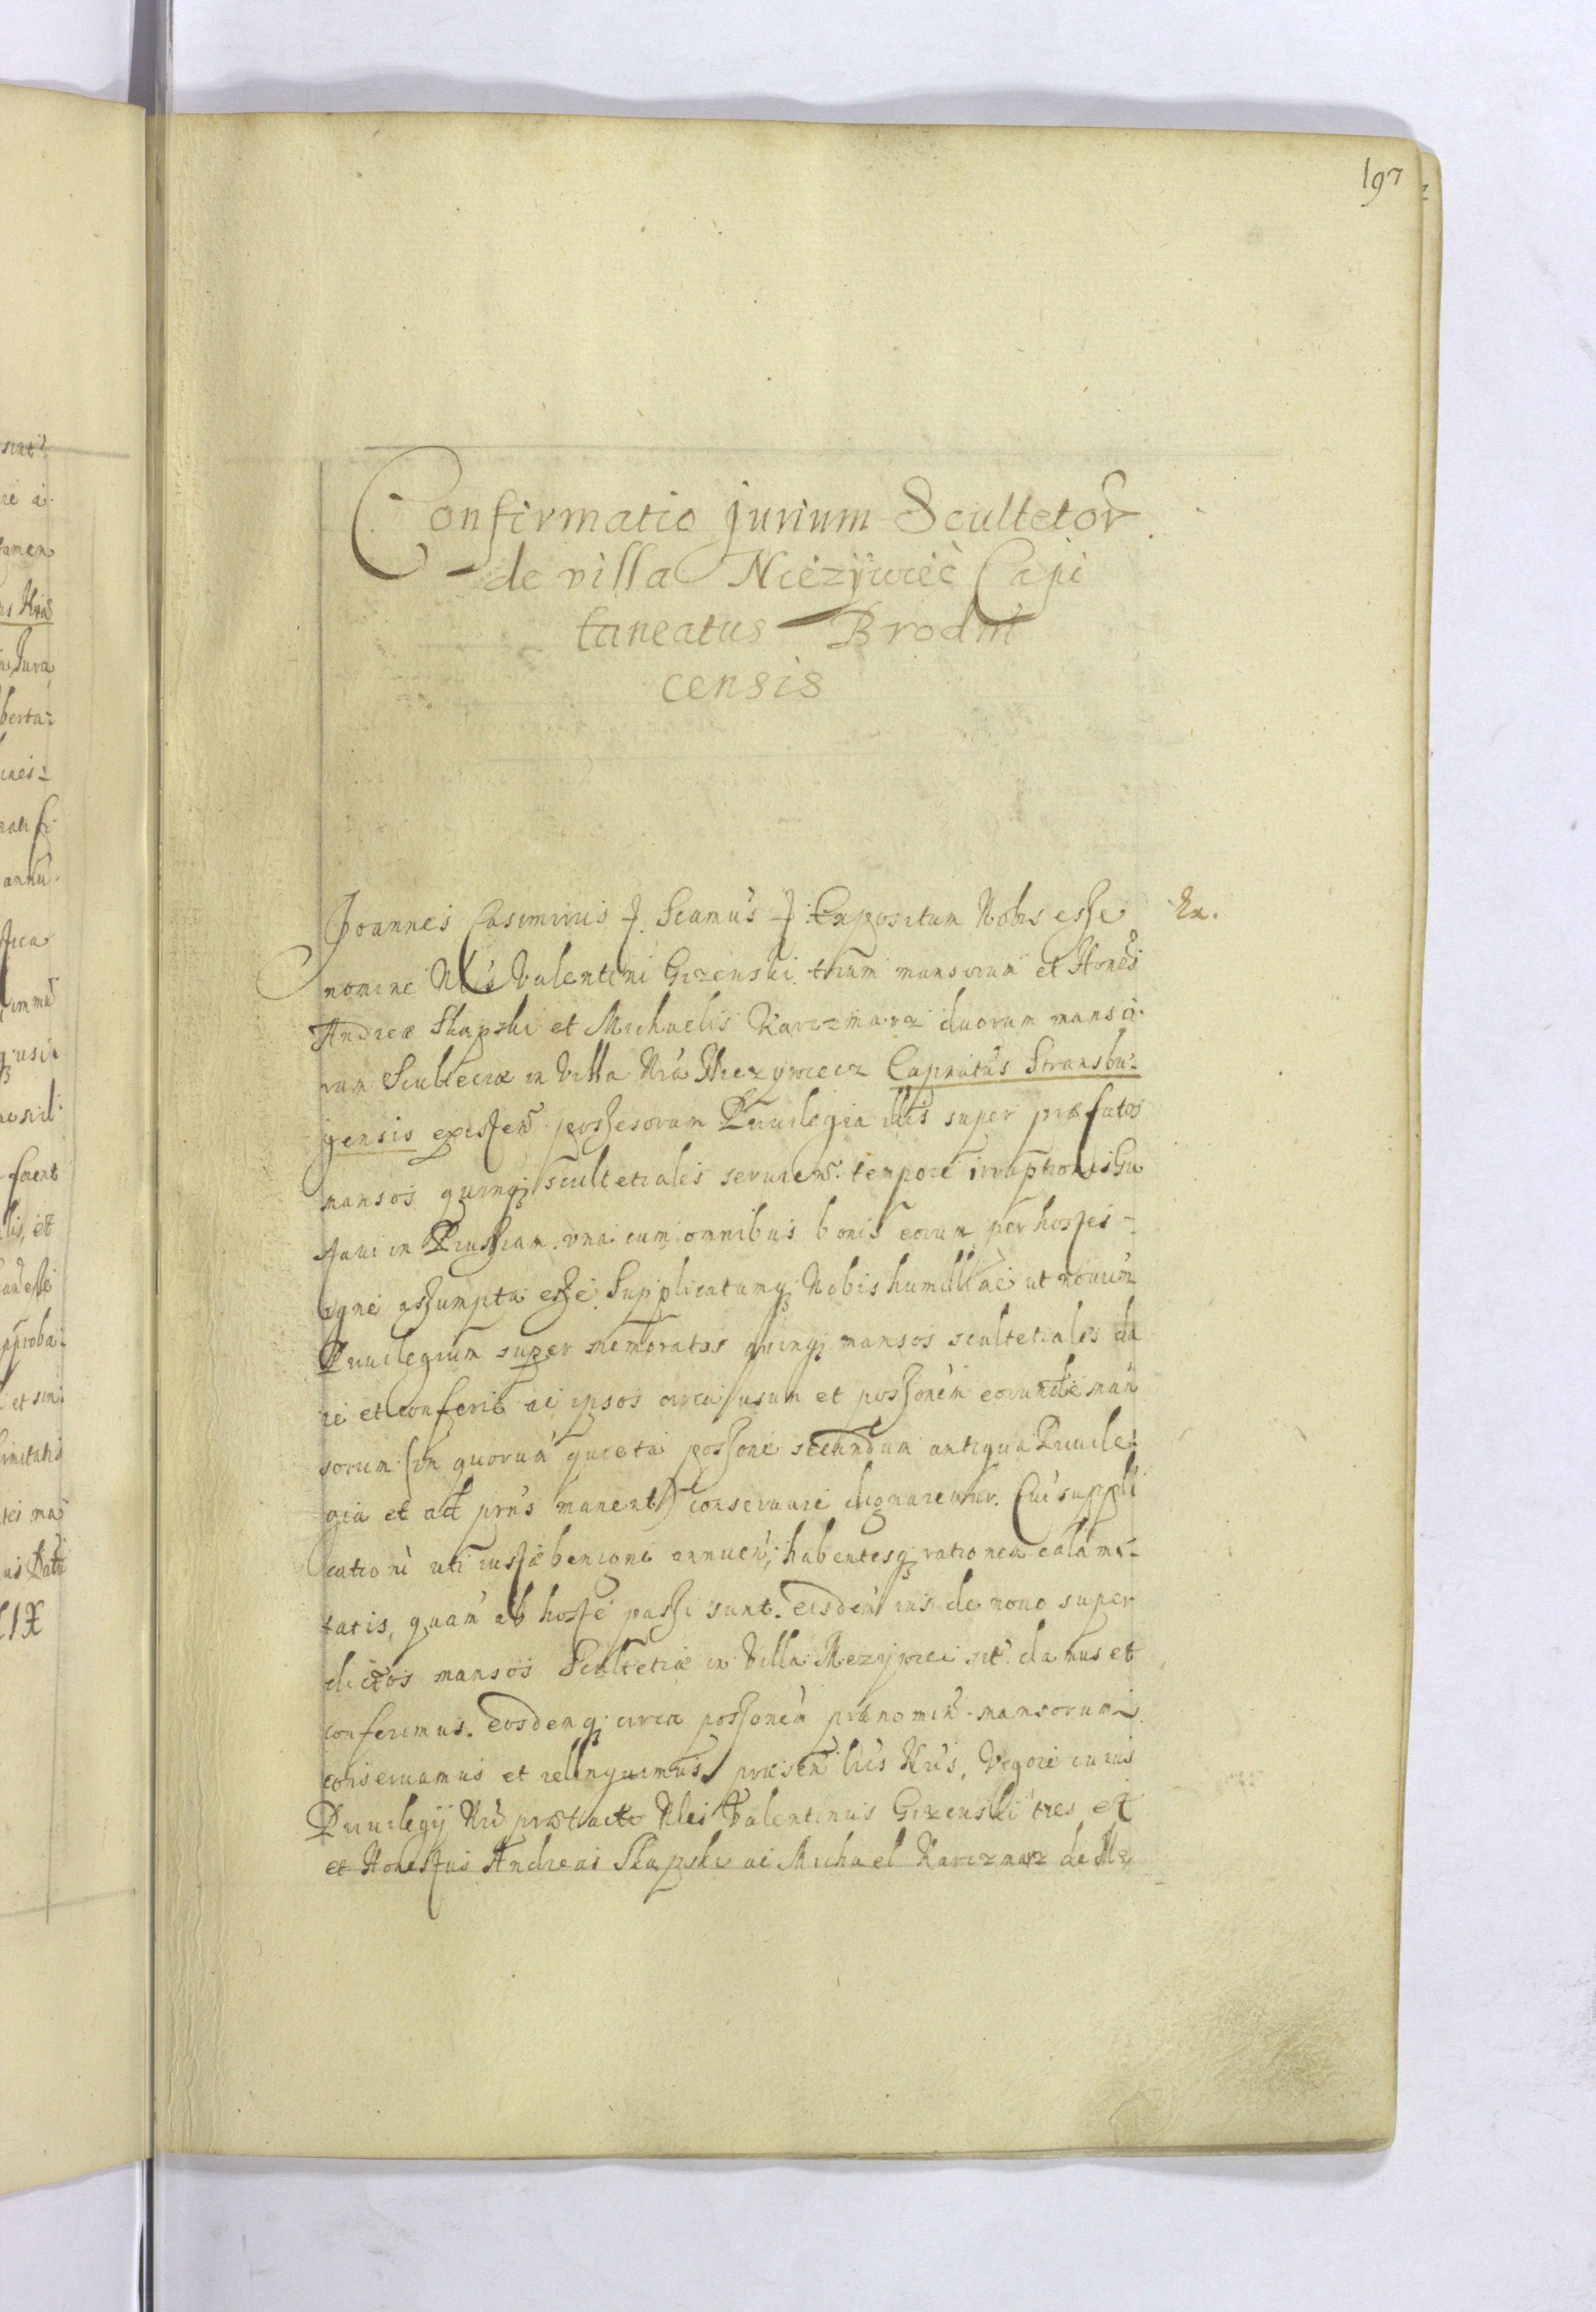 197
Confirmatio Jurium Scultetor.
de villa Niezywiec Capi
taneatus Brodni
censis
Joannes Casimirus J. Scamus J. Expositum Nobis esse Ex.
nomine Nlis Valentini Gizenski trium mansorum et Hones
Andreæ Skapski et Michaelis Karczmarz duorum manso
rum Scultetiæ in Villa Nra Niezywiecz Capnatus Strasbu-
gensis existen possesorum Priuilegia illis super præfatos
mansos quinq scultetiales seruien. tempore irruptionis Gu
staui in Prussiam vna cum omnibus bonis eorum per hostes
igne assumpta esse. Supplicatumq Nobis humillime ut nouum
Priuilegium super memoratos quinq mansos scultetiales da
re et conferre ac ipsos circa usum et possonem eorunde man
sorum (in quorum quieta possone secundum antiqua Priuile
gia et ad prns manent) conseruare dignaremur. Cui suppli
cationi uti iustæ benigne annuen, habentesq rationem calami-
tatis, quam ab hoste passi sunt. eisdem ius de nouo super
dictos mansos Scultetiæ in Villa Niezywiec sit. damus et
conferimus. eosdemq circa possonem prænomin. mansorum
conseruamus et relinquimus præsen lris Nris, Vigore cuius
Priuilegij Nri prætacti Nlis Valentinus Gizenski tres et
et Honestus Andreas Skapski ac Michael Karczmarz de Ni